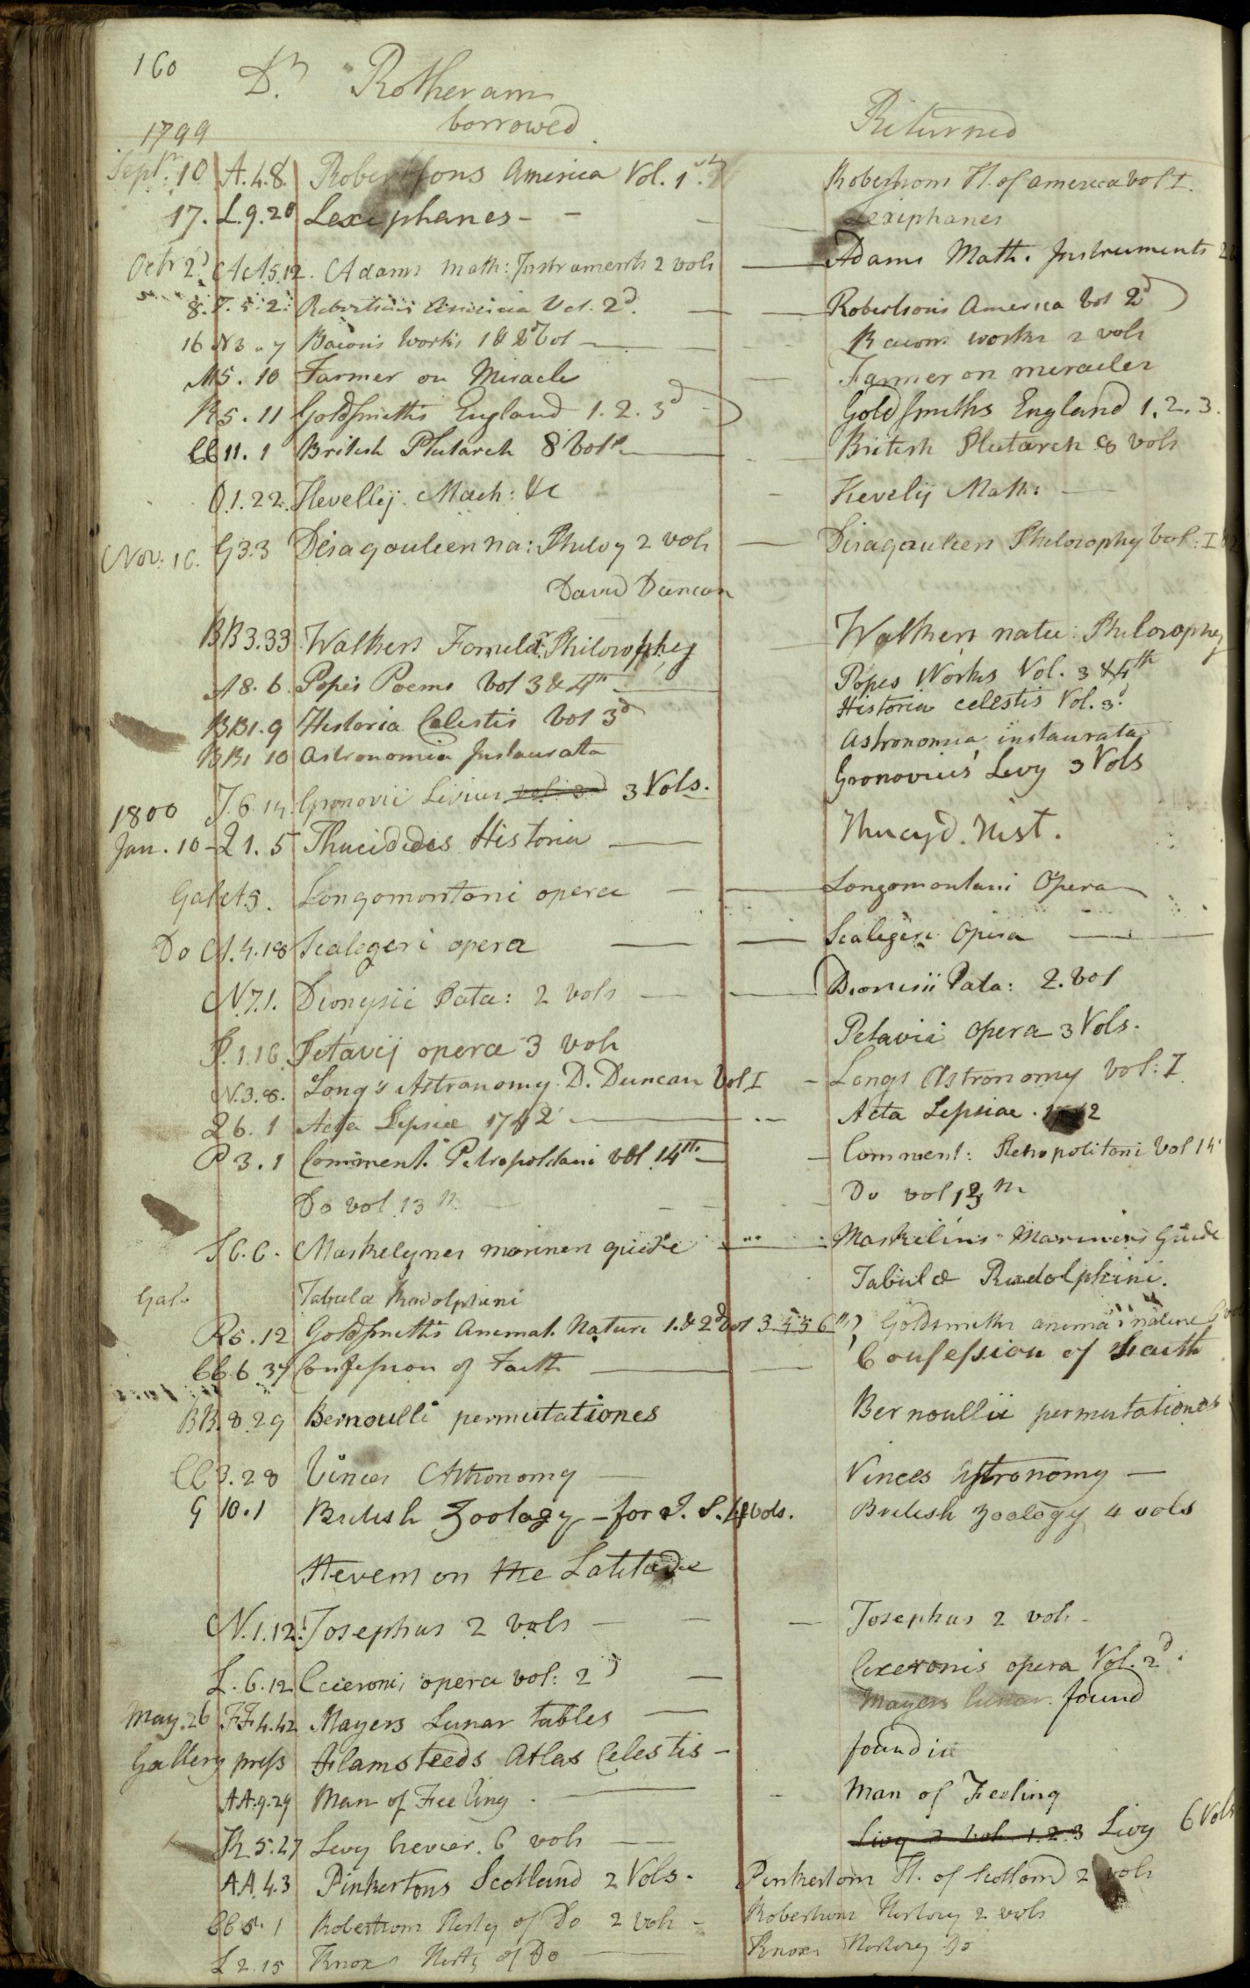 160
Dr Rotheram
borrowed Returned
1799
Septr 10 A.4.8. Robertsons America Vol. 1st Robertsons H. of america vol I.
17. L.9.20 Lexiphanes - - Lexiphanes
Octr 2d A.5.12. Adams Math: Instruments 2 vols Adams Math. Instruments 2
8. T.5.2. Robertsons America Vol. 2d. Robertsons America Vol 2d
16 N3.7 Bacons Works 1 & 2d Vol Bacons works 2 vols
M5.10 Farmer on Miracle Farmer on miracles
R5.11 Goldsmith's England 1.2.3d Goldsmiths England 1.2.3.
CC11.1 British Plutarch 8 Vols British Plutarch 8 vols
O.1.22. Hevelij. Mach: &c Hevelij Mach:
Nov. 16. G3.3 Desaguliers na: Philoy 2 vols Desaguliers Philosophy Vol: I
David Duncan
BB3.33 Walkers Philosophy Walkers natu: Philosophy
A8.6. Popes Poems Vol 3 & 4th Popes Works Vol. 3 & 4th
BB1.9 Historia Celestis Vol 3d Historia celestis Vol. 3d.
BB1 10 Astronomia Instaurata Astronomia instaurata
J.6.14 Gronovii Livius vol. 3d 3 Vols. Gronovius' Levy 3 Vols
1800
Jan. 10 - Q1.5 Thucidides Historia Thucyd. Hist.
Gal A5. Longomontani opera Longomontani Opera
Do A.4.18 Scaligeri opera Scaligeri Opera
N7.1. Dionysii Pata: 2 vols Dionisii Pata: 2. Vol
P.1.16. Petavij opera 3 vols Petavii opera 3 Vols.
N.3.8. Long's Astronomy. D. Duncan Vol I Longs Astronomy Vol: I
Q6.1 Acta Lepsiæ 1742 Acta Lepsiae.
P3.1 Comment. Petropolitani vol 14th Comment: Petropolitani Vol 14
Do vol 13th Do vol 13th
S6.6. Maskelynes mariners guide Maskelins Mariners Guide
Gal. Tabulæ Rudolphini Tabulæ Rudolphini.
R5.12 Goldsmiths Animat. Nature 1. & 2d vol 3.4.5 6th Goldsmiths anima: nature
CC6.37 Confession of Faith Confession of Faith
BB.8.29 Bernoulli permutationes Bernoullii permutationes
CC3.28 Vinces Astronomy Vinces Astronomy
G10.1 British Zoology - for J. S. 4 vols. British Zoology 4 vols
Stevens on the Latitude
N.1.12. Josephus 2 vols Josephus 2 vols
L.6.12 Ciceronis opera vol: 2d Ciceronis opera Vol. 2d.
May. 26 FF4.42 Mayers Lunar tables Mayers lunar. found
Gallery press Flamsteeds Atlas Celestis - found in
AA.9.29 Man of Feeling. Man of Feeling
R.5.27 Levy hevier. 6 vols Livy 3 Vols 1.2.3 Livy 6 Vols
AA.4.3 Pinkertons Scotland 2 Vols. Pinkertons H. of Scotland 2 vols
CC5.1 Robertsons Histy of Do 2 vols - Robertsons History 2 vols
L2.15 Knox's Histy of Do Knoxes History Do